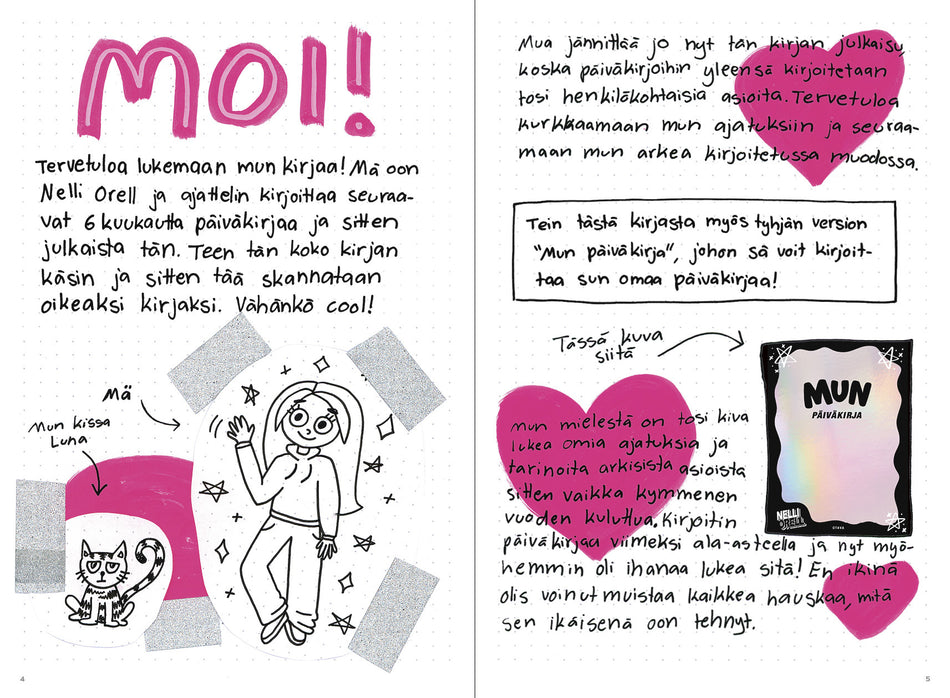 MOI!
Tervetuloa lukemaan mun kirjaa! Mä oon
Nelli Orell ja ajattelin kirjoittaa seuraa-
vat 6 kuukautta päiväkirjaa ja sitten
julkaista tän. Teen tän koko kirjan
käsin ja sitten tää skannataan
oikeaksi kirjaksi. Vähänkö cool!
Mä
Mun kissa
Luna
4
Mua jännittää jo nyt tän kirjan julkaisu,
koska päiväkirjoihin yleensä kirjoitetaan
tosi henkilökohtaisia asioita. Tervetuloa
kurkkaamaan mun ajatuksiin ja seuraa-
maan mun arkea kirjoitetussa muodossa.
Tein tästä kirjasta myös tyhjän version
"Mun päiväkirja", johon sä voit kirjoit-
taa sun omaa päiväkirjaa!
Tässä kuva
siitä
MUN
PÄIVÄKIRJA
NELLI
ORELL
OTAVA
mun mielestä on tosi kiva
lukea omia ajatuksia ja
tarinoita arkisista asioista
sitten vaikka kymmenen
vuoden kuluttua. Kirjoitin
päiväkirjaa viimeksi ala-asteella ja nyt myö-
hemmin oli ihanaa lukea sitä! En ikinä
olis voinut muistaa kaikkea hauskaa, mitä
sen ikäisenä oon tehnyt.
5